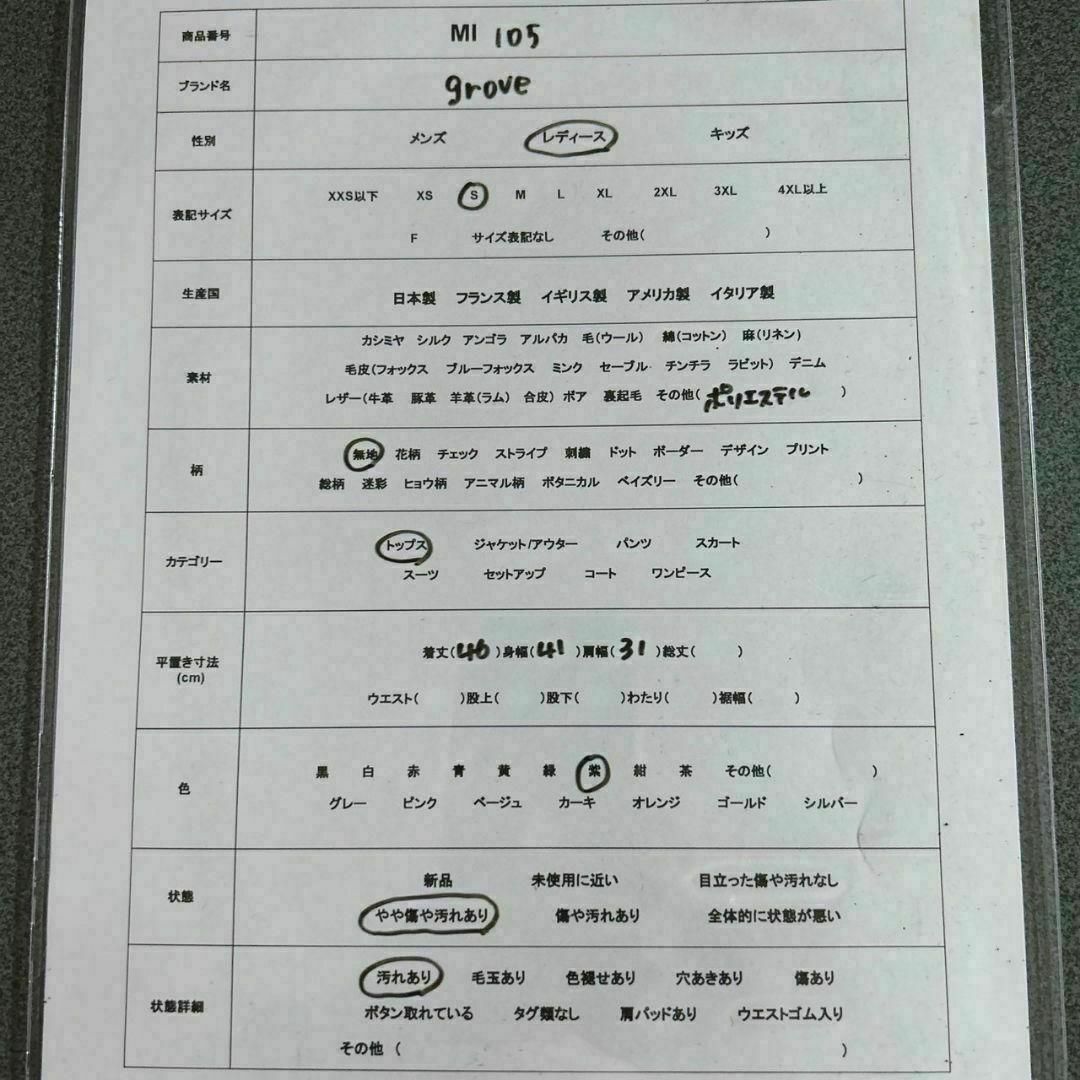 商品番号 MI 105
ブランド名 grove
性別 メンズ レディース キッズ
表記サイズ XXS以下 XS S M L XL 2XL 3XL 4XL以上
F サイズ表記なし その他( )
生産国 日本製 フランス製 イギリス製 アメリカ製 イタリア製
素材 カシミヤ シルク アンゴラ アルパカ 毛(ウール) 綿(コットン) 麻(リネン)
毛皮(フォックス ブルーフォックス ミンク セーブル チンチラ ラビット) デニム
レザー(牛革 豚革 羊革(ラム) 合皮) ボア 裏起毛 その他(ポリエステル )
柄 無地 花柄 チェック ストライプ 刺繍 ドット ボーダー デザイン プリント
総柄 迷彩 ヒョウ柄 アニマル柄 ボタニカル ペイズリー その他( )
カテゴリー トップス ジャケット/アウター パンツ スカート
スーツ セットアップ コート ワンピース
平置き寸法 (cm) 着丈(46 )身幅(41 )肩幅(31 )総丈( )
ウエスト( )股上( )股下( )わたり( )裾幅( )
色 黒 白 赤 青 黄 緑 紫 紺 茶 その他( )
グレー ピンク ベージュ カーキ オレンジ ゴールド シルバー
状態 新品 未使用に近い 目立った傷や汚れなし
やや傷や汚れあり 傷や汚れあり 全体的に状態が悪い
状態詳細 汚れあり 毛玉あり 色褪せあり 穴あきあり 傷あり
ボタン取れている タグ類なし 肩パッドあり ウエストゴム入り
その他 ( )